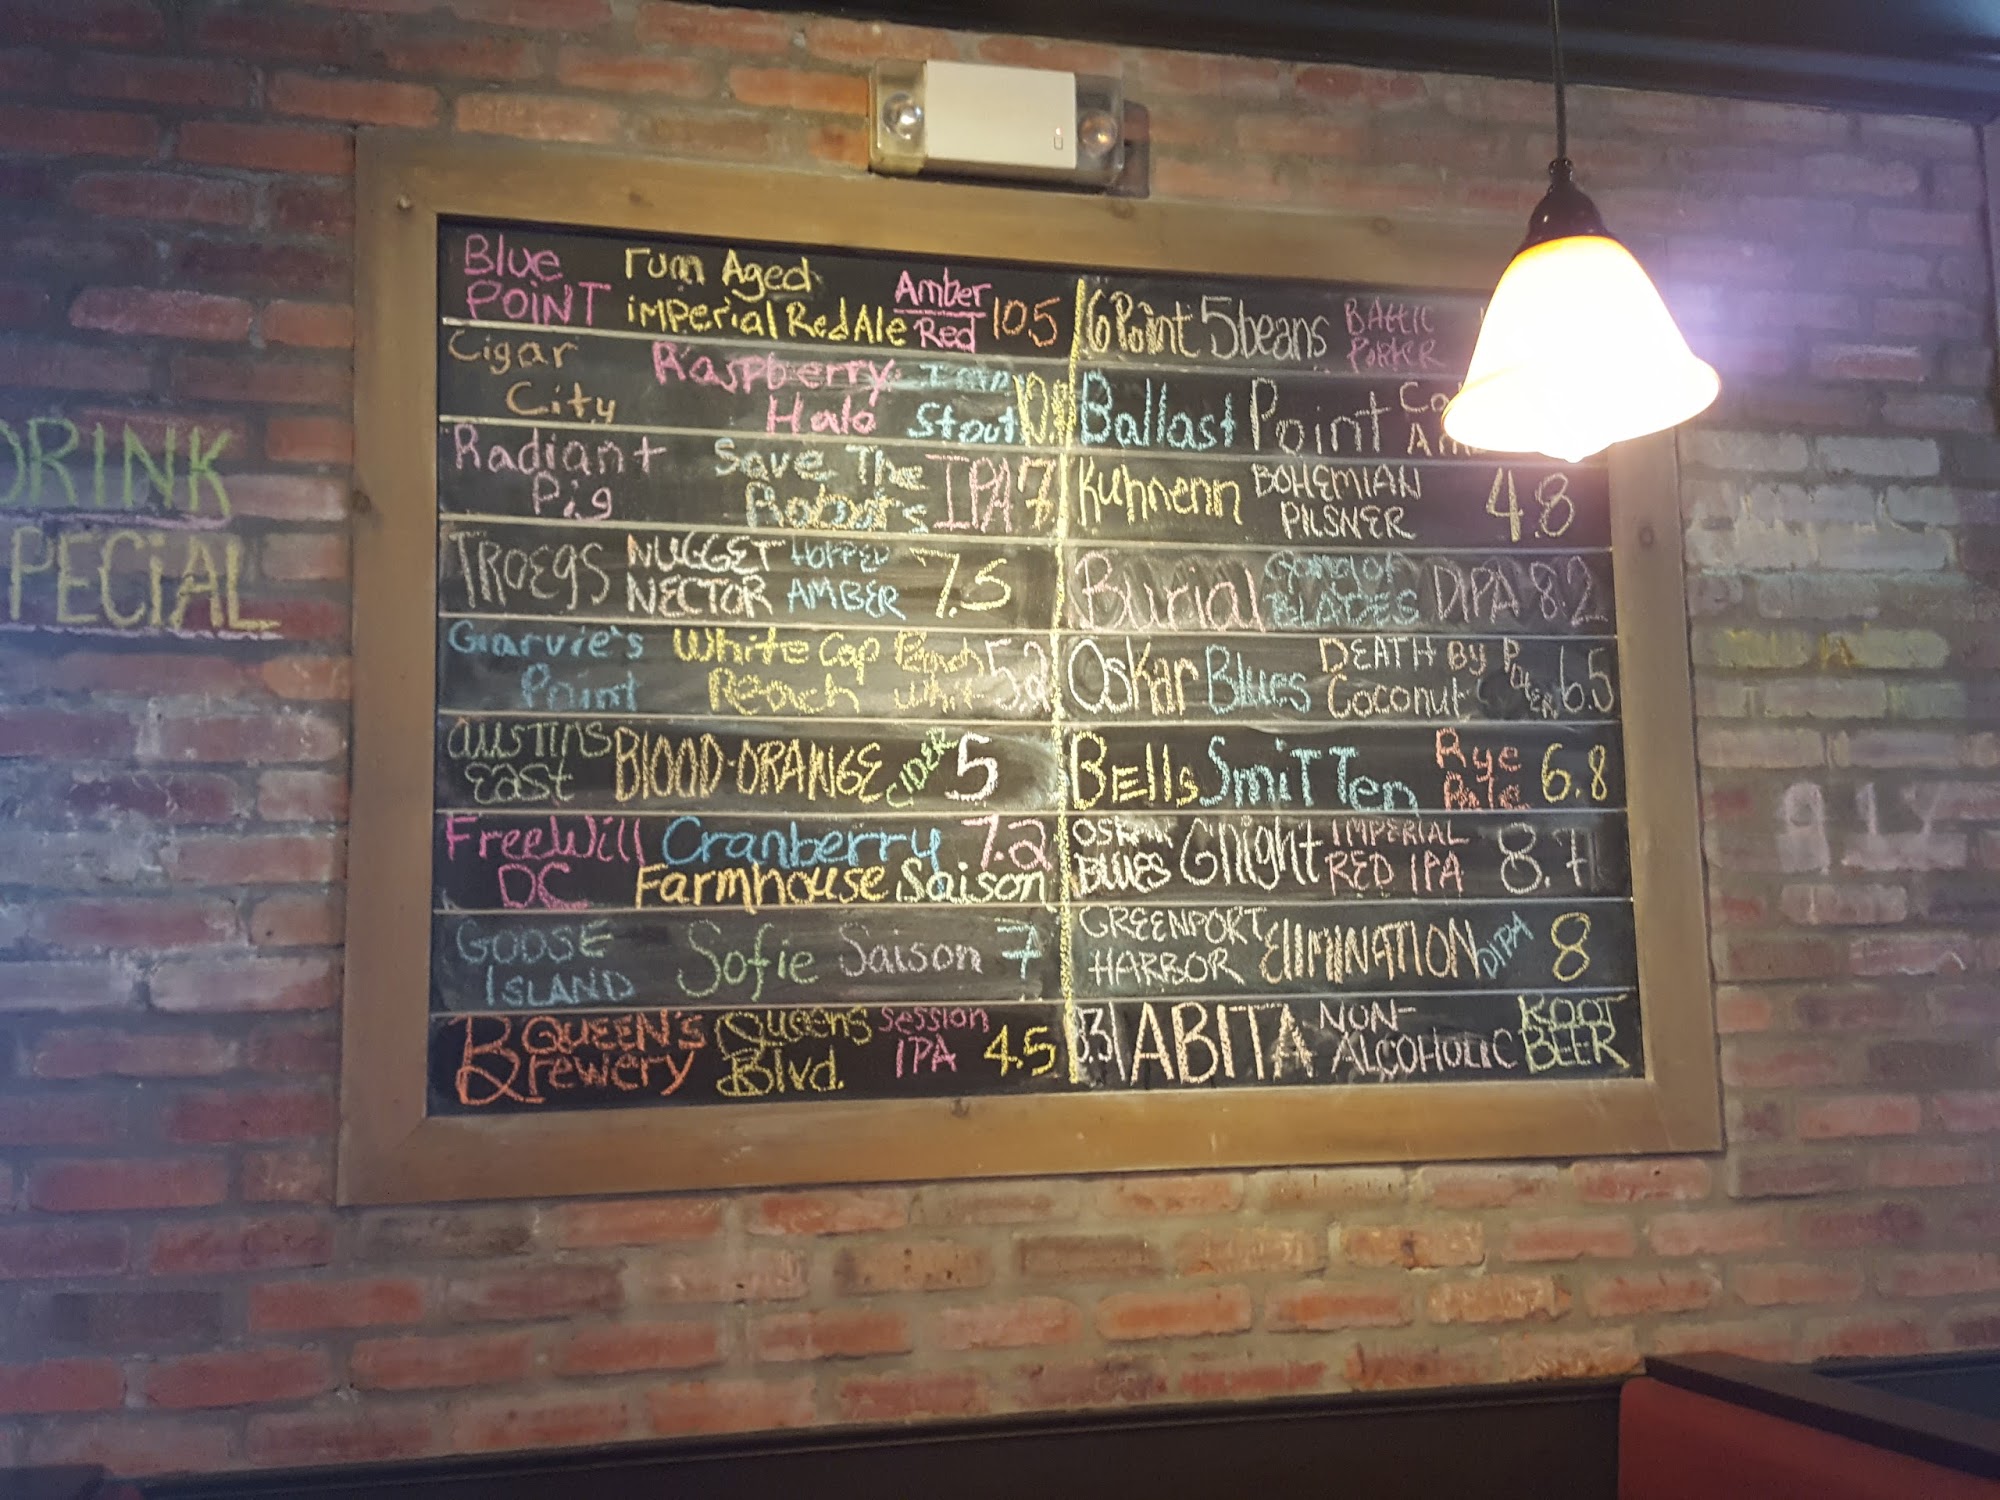 DRINK
PECIAL
Blue rum Aged Amber
POINT imperial Red Ale Red 10.5
Cigar Raspberry
City Halo Stout
Radiant Save The IPA 7
Pig Robots
TROEGS NUGGET HOPPED 7.5
NECTOR AMBER
Garvie's White Cap Peach 5.2
Point Reach Whit
AUSTINS BLOOD-ORANGE CIDER 5
East
FreeWill Cranberry 7.2
DC Farmhouse Saison
GOOSE Sofie Saison 7
ISLAND
QUEEN'S Queens Session 4.5
Brewery Blvd. IPA
6 Point 5 beans BALTIC
PORTER
Ballast Point
Kuhnenn BOHEMIAN 4.8
PILSNER
Burial DIPA 8.2
BLADES
OsKar Blues DEATH By 6.5
Coconut
BElls SmiTTen Rye 6.8
Pale
OSKAR G'Night IMPERIAL 8.7
BLUES RED IPA
GREENPORT ElIMINATION DIPA 8
HARBOR
ABITA NON- ROOT
ALCOHOLIC BEER